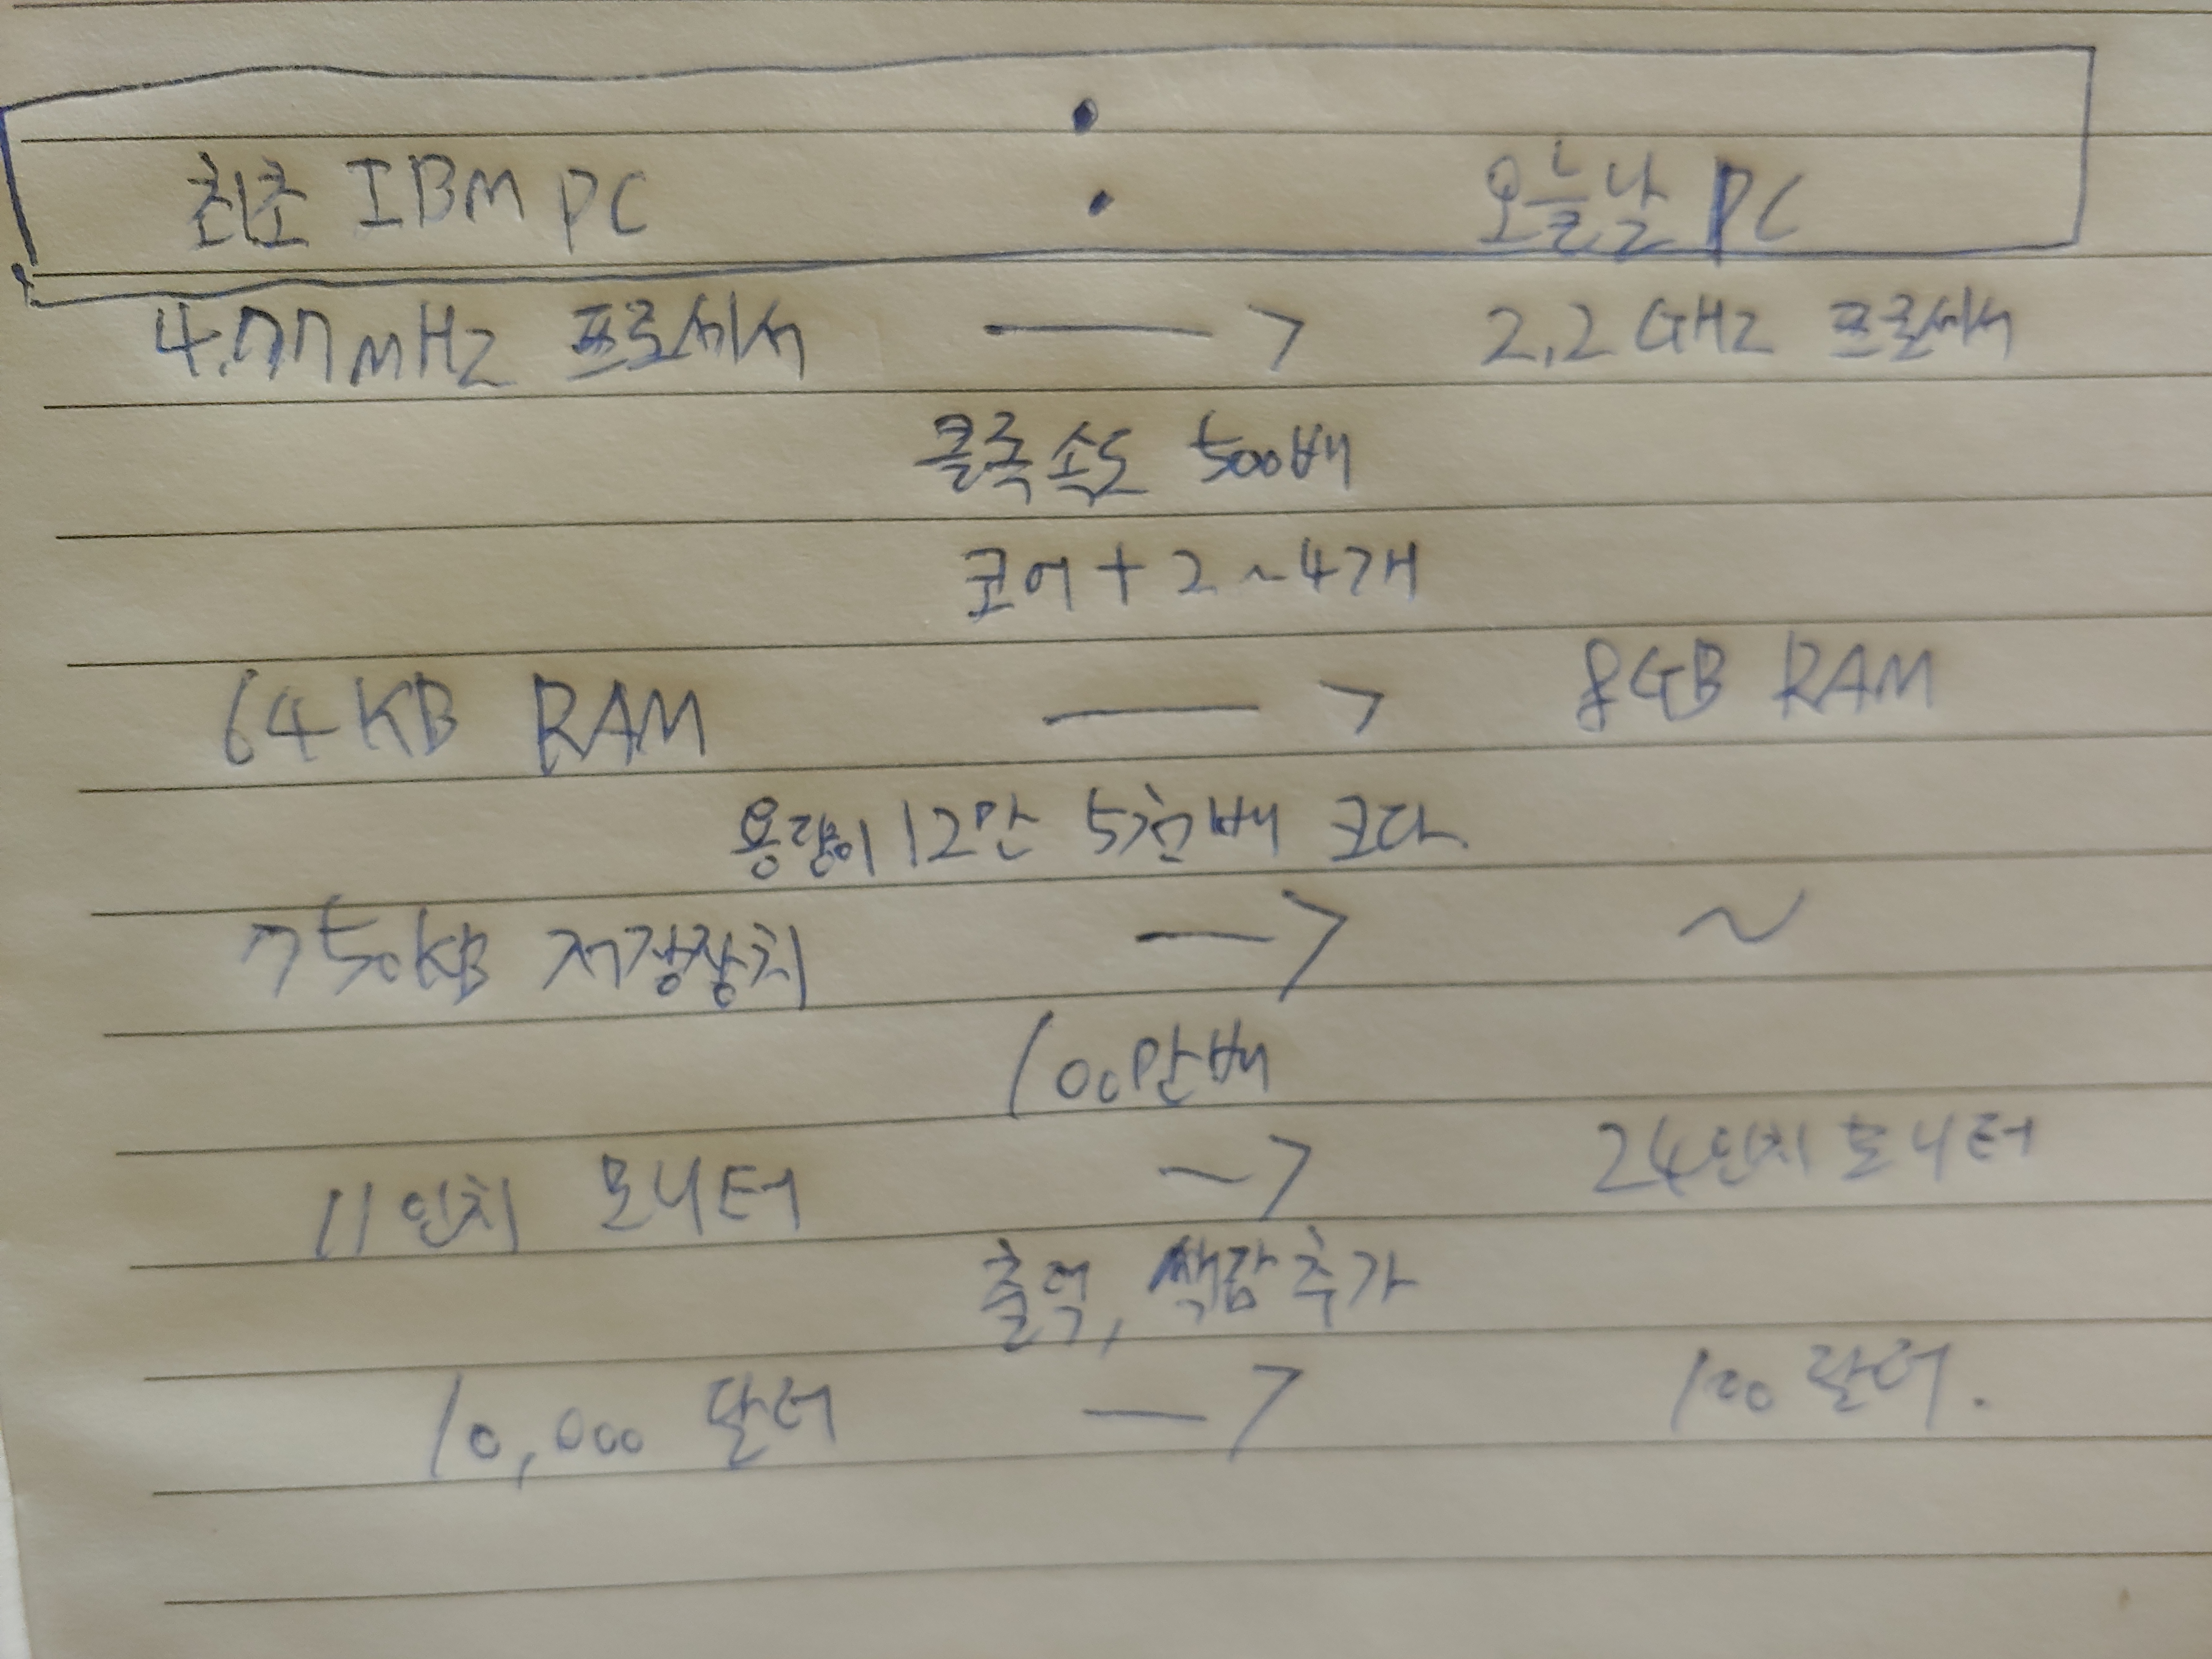 최초 IBM PC : 오늘날 PC
4.77mHz 프로세서 —> 2.2GHz 프로세서
클록속도 500배
코어 + 2~4개
64KB RAM —> 8GB RAM
용량이 12만 5천배 크다.
750KB 저장장치 —> ~
100만배
11인치 모니터 —> 24인치 모니터
출력, 색감 추가
10,000 달러 —> 100 달러.